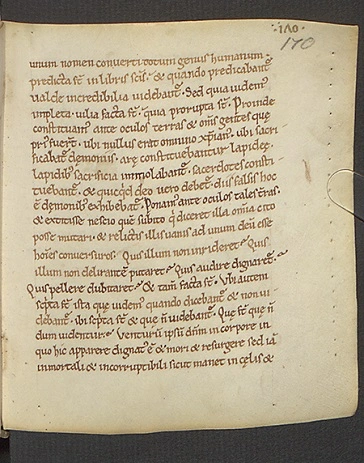 ·170·
170
unum nomen converti totum genus humanum·
predicta st̄ in libris scīs· & quando predicabant᷑
valde incredibilia videbant᷑· Sed quia videm᷑
impleta· vilia facta st̄· quia prorupta st̄· Proinde
constituam᷑ ante oculos terras & om̄s gentes que
pri᷑ fuer̄t· ubi nullus erat omnino xp̄ian᷑· ubi sacri
ficabat᷑ demoniis· arę constituebantur lapideę·
lapidib᷑ sacrificia immolabant᷑· sacerdotes consti
tuebant᷑· & quicq̄d deo vero debet᷑· diis falsis hoc
ē demonib᷑ exhibebat᷑· Ponam᷑ ante oculos tales t̄ras·
& extitisse nescio quē subito q̄ diceret illa om̄ia cito
posse mutari· & relictis illis vanis ad unum deū esse
hoīes conversuros· Quis illum non irrideret· Quis
illum non delirantē putaret· Quis audire dignaret᷑·
Quis pellere dubitaret· & tam̄ facta st̄· Ubi autem
sc̄pta st̄ ista que videm᷑ quando dicebant᷑ & non vi
debant᷑· ibi sc̄pta st̄ & que n̄ videbant᷑· Quę st̄ que n̄
dum videntur· Venturū ipsū dn̄m in corpore in
quo hic apparere dignat᷑ ē & mori & resurgere sed iā
inmortali & incorruptibili sicut manet in cęlis &